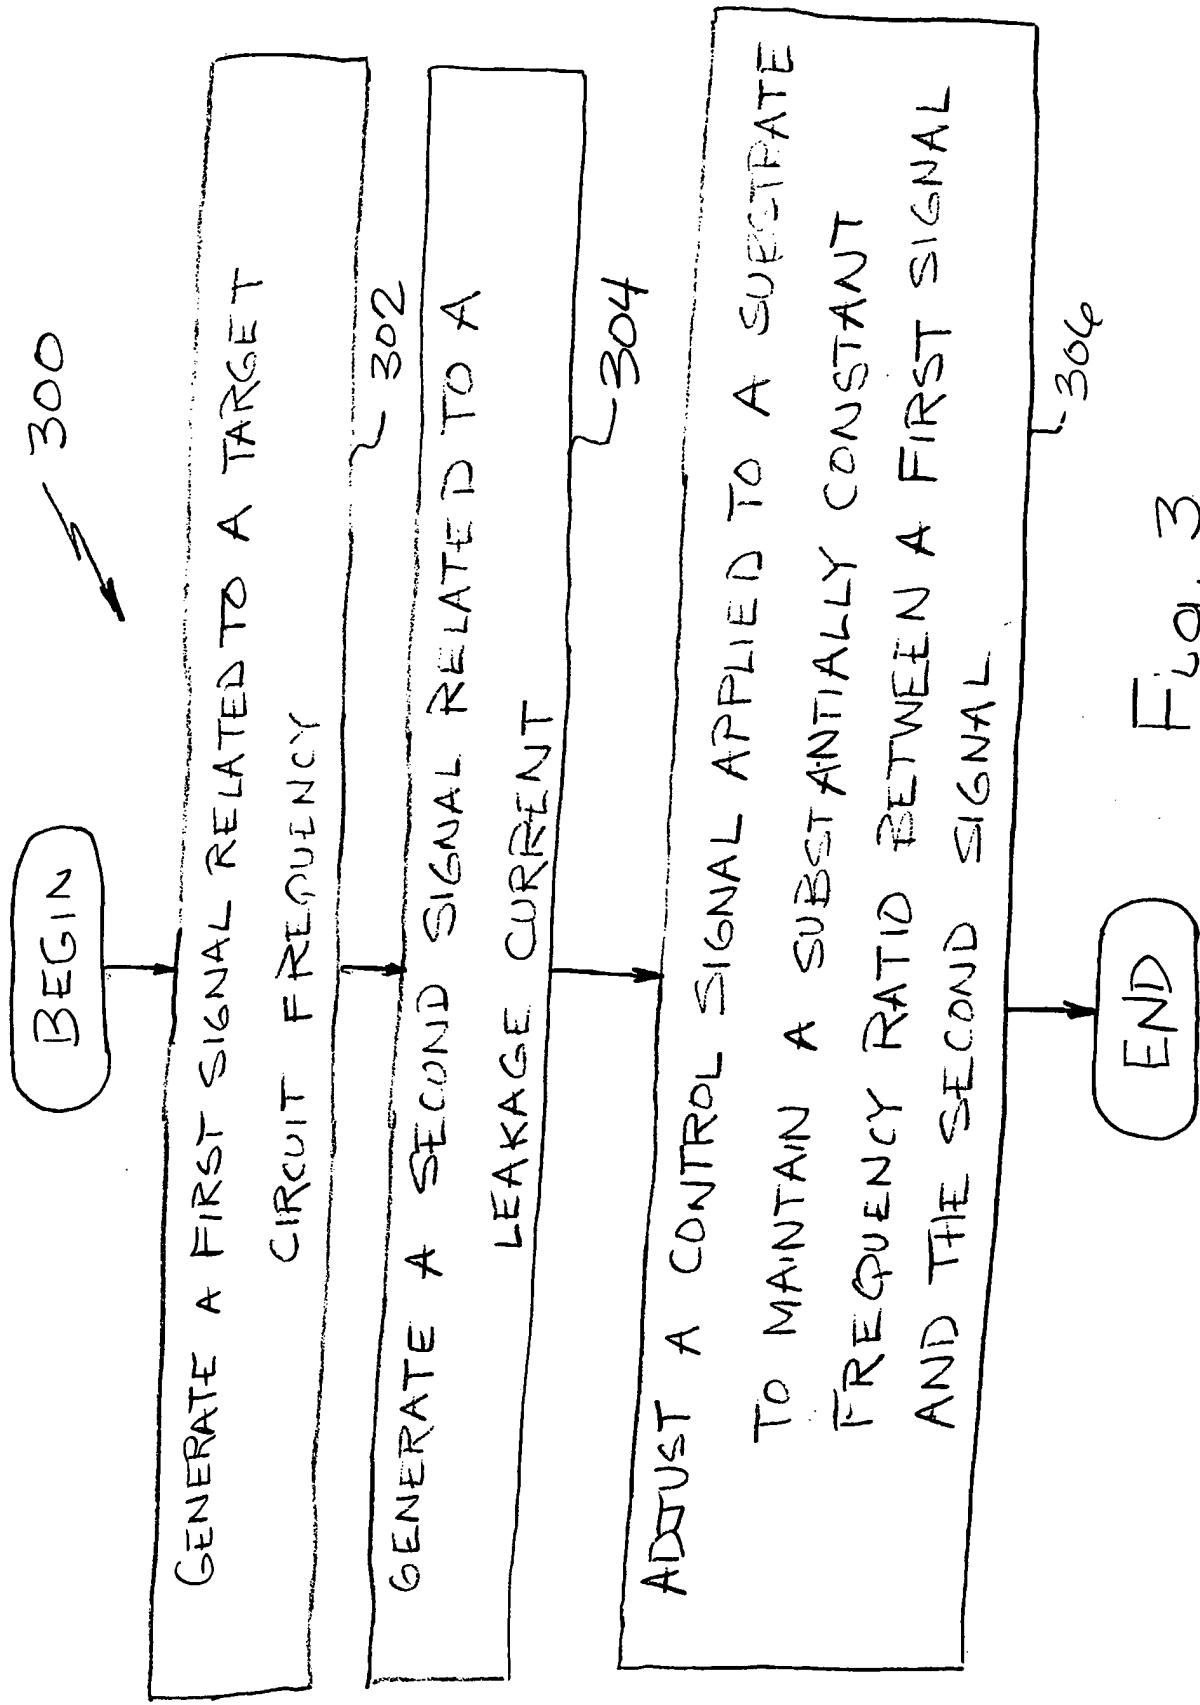 300
BEGIN
GENERATE A FIRST SIGNAL RELATED TO A TARGET
CIRCUIT FREQUENCY
302
GENERATE A SECOND SIGNAL RELATED TO A
LEAKAGE CURRENT
304
ADJUST A CONTROL SIGNAL APPLIED TO A SUBSTRATE
TO MAINTAIN A SUBSTANTIALLY CONSTANT
FREQUENCY RATIO BETWEEN A FIRST SIGNAL
AND THE SECOND SIGNAL
306
END
FIG. 3